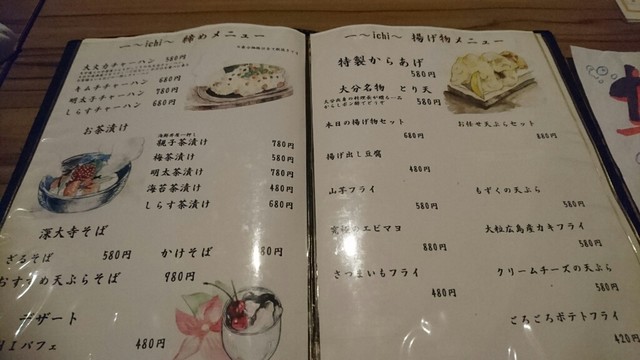 一～ichi～ 締めメニュー
大火力チャーハン 580円
キムチチャーハン 680円
明太子チャーハン 780円
しらすチャーハン 680円
お茶漬け
親子茶漬け 780円
梅茶漬け 580円
明太茶漬け 780円
海苔茶漬け 480円
しらす茶漬け 680円
深大寺そば
ざるそば 580円 かけそば 80円
おすすめ天ぷらそば 980円
デザート
パフェ 480円
一～ichi～ 揚げ物メニュー
特製からあげ
580円
大分名物 とり天
580円
本日の揚げ物セット
680円
お任せ天ぷらセット
880円
揚げ出し豆腐
480円
山芋フライ
580円
もずくの天ぷら
580円
究極のエビマヨ
880円
大粒広島産カキフライ
580円
さつまいもフライ
480円
クリームチーズの天ぷら
580円
ごろごろポテトフライ
420円